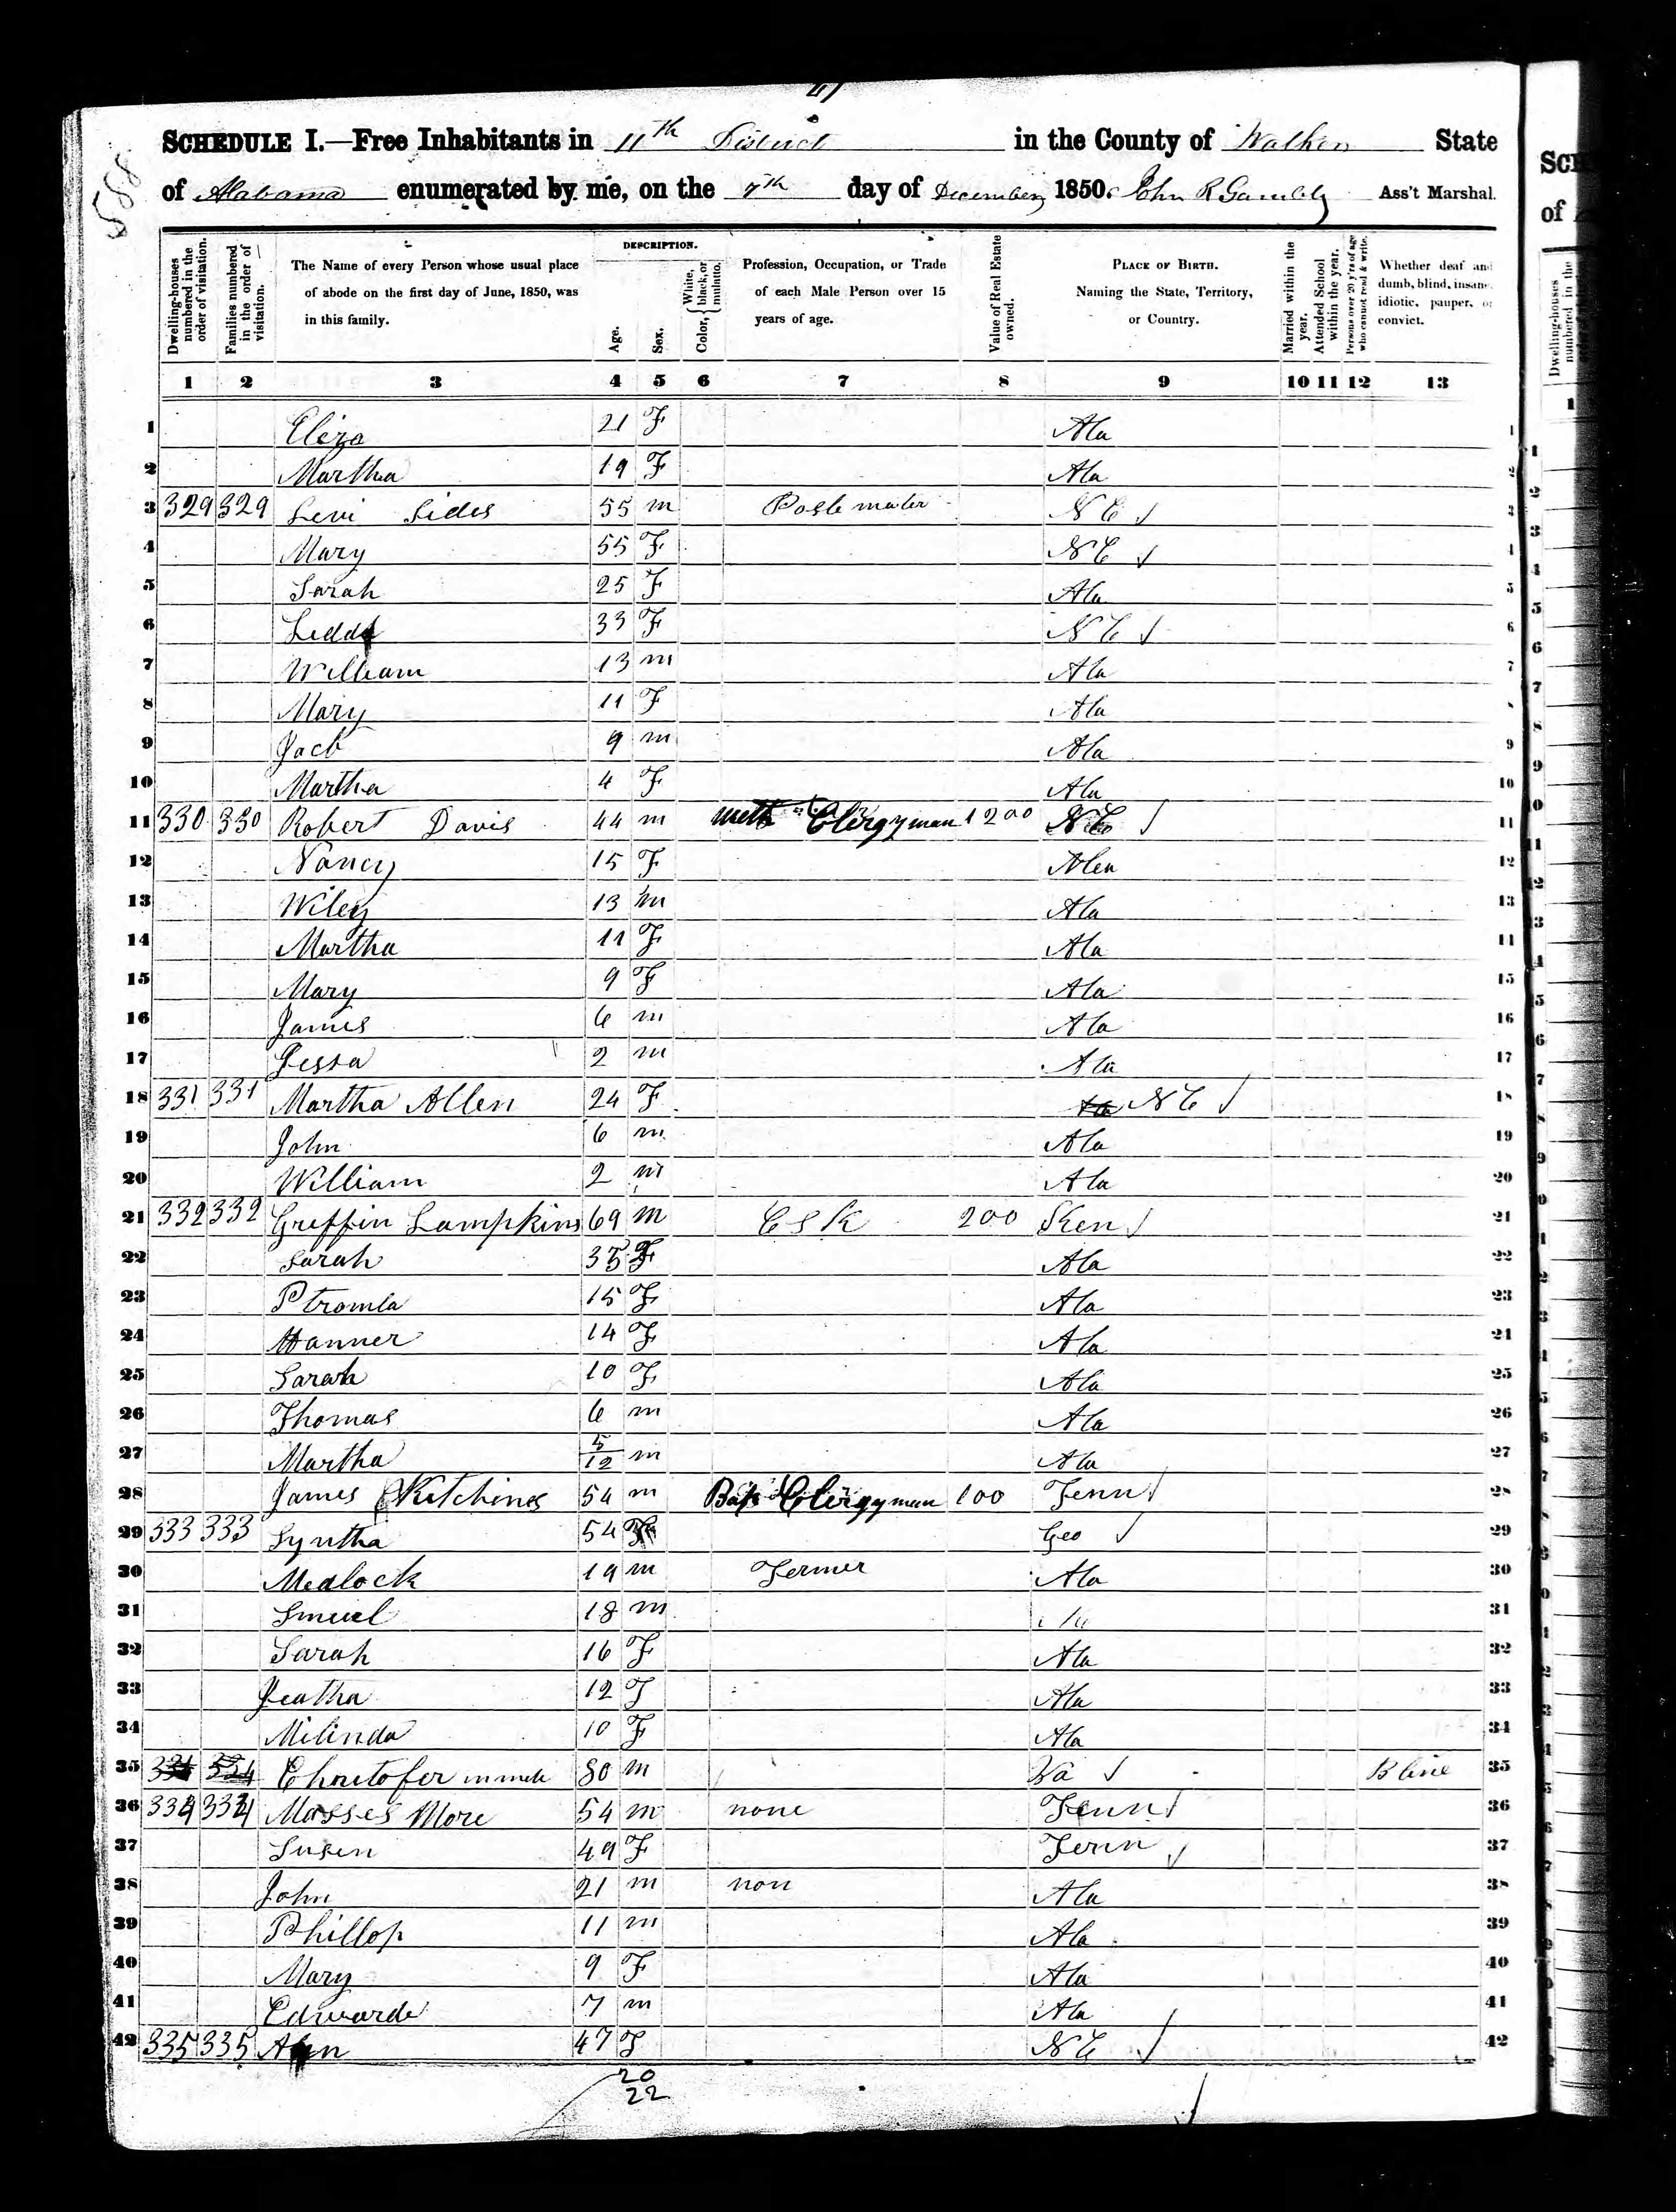 41
558
SCHEDULE I.—Free Inhabitants in 11th District in the County of Walker State
of Alabama enumerated by me, on the 7th day of December 1850. John R Gamble Ass't Marshal.
Dwelling-houses numbered in the order of visitation.
Families numbered in the order of visitation.
The Name of every Person whose usual place of abode on the first day of June, 1850, was in this family.
DESCRIPTION.
Age.
Sex.
Color, { White, black, or mulatto.
Profession, Occupation, or Trade of each Male Person over 15 years of age.
Value of Real Estate owned.
PLACE OF BIRTH. Naming the State, Territory, or Country.
Married within the year.
Attended School within the year.
Persons over 20 y'rs of age who cannot read & write.
Whether deaf and dumb, blind, insane, idiotic, pauper, or convict.
1 2 3 4 5 6 7 8 9 10 11 12 13
1 Eliza 21 F Ala 1
2 Martha 19 F Ala 2
3 329 329 Levi Sides 55 m Postmaster N C 3
4 Mary 55 F N C 4
5 Sarah 25 F Ala 5
6 33 F N C 6
7 William 13 m Ala 7
8 Mary 11 F Ala 8
9 Jacb 9 m Ala 9
10 Martha 4 F Ala 10
11 330 330 Robert Davis 44 m Meth Clergyman 1200 N C 11
12 Nancy 15 F Ala 12
13 Wiley 13 m Ala 13
14 Martha 11 F Ala 14
15 Mary 9 F Ala 15
16 James 6 m Ala 16
17 Jessa 2 m Ala 17
18 331 331 Martha Allen 24 F N C 18
19 John 6 m Ala 19
20 William 2 m Ala 20
21 332 332 Greffin Lampkins 69 m C S K 200 Ken 21
22 Sarah 35 F Ala 22
23 Ptromla 15 F Ala 23
24 Hanner 14 F Ala 24
25 Sarah 10 F Ala 25
26 Thomas 6 m Ala 26
27 Martha 5/12 m Ala 27
28 James Kitchines 54 m Bap Clergyman 100 Tenn 28
29 333 333 Syntha 54 F Geo 29
30 Medlock 19 m Fermer Ala 30
31 Smuel 18 m 31
32 Sarah 16 F Ala 32
33 Jeatha 12 F Ala 33
34 Milinda 10 F Ala 34
35 Chrstofer 80 m Va Bline 35
36 334 334 Mosses More 54 m none Tenn 36
37 Susen 49 F Tenn 37
38 John 21 m non Ala 38
39 Phillop 11 m Ala 39
40 Mary 9 F Ala 40
41 Edwarde 7 m Ala 41
42 335 335 Ann 47 F N C 42
20
22